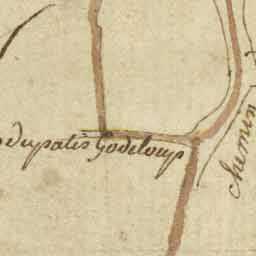 dupatis Godeloup
chemin